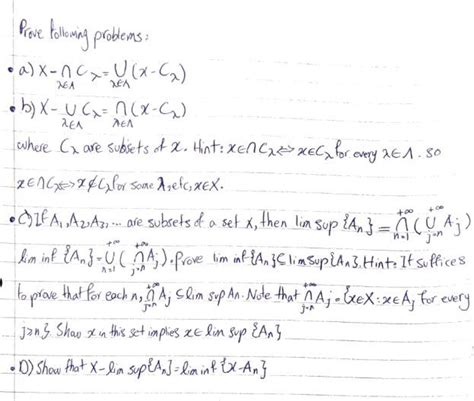 Prove following problems:
• a) X-∩Cλ=∪(X-Cλ)
λ∈Λ λ∈Λ
• b) X-∪Cλ=∩(X-Cλ)
λ∈Λ λ∈Λ
where Cλ are subsets of X. Hint: x∈∩Cλ⇔x∈Cλ for every λ∈Λ. so
x∈∩Cλ⇔x∉Cλ for some λ, etc, x∈X.
• C) If A₁, A₂, A₃, ... are subsets of a set X, then lim sup {An} = ∩(∪Aj)
+∞ +∞ n=1 j=n
lim inf {An}=∪(∩Aj). Prove lim inf{An}⊆limsup{An}. Hint: It suffices
+∞ +∞ n=1 j=n
to prove that for each n, ∩Aj ⊆ lim sup An. Note that ∩Aj = {x∈X: x∈Aj for every
+∞ j=n +∞ j=n
j≥n}. Show x in this set implies x∈ lim sup {An}
• D) Show that X-lim sup{An}=lim inf {X-An}